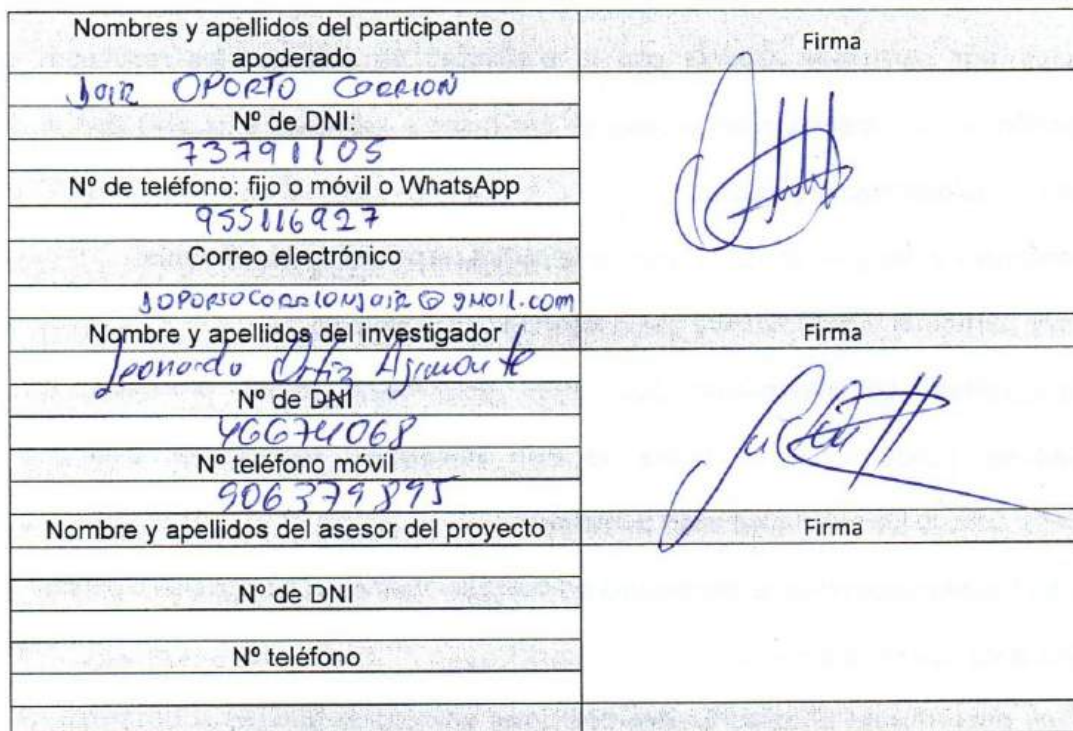 Nombres y apellidos del participante o
apoderado
Firma
JOIR OPORTO CORRION
Nº de DNI:
73791105
Nº de teléfono: fijo o móvil o WhatsApp
955116927
Correo electrónico
JOPORTOCORRIONJOIR@gmoil.com
Nombre y apellidos del investigador
Firma
Leonardo Ortiz
Nº de DNI
46674068
Nº teléfono móvil
906379895
Nombre y apellidos de asesor del proyecto
Firma
Nº de DNI
Nº teléfono